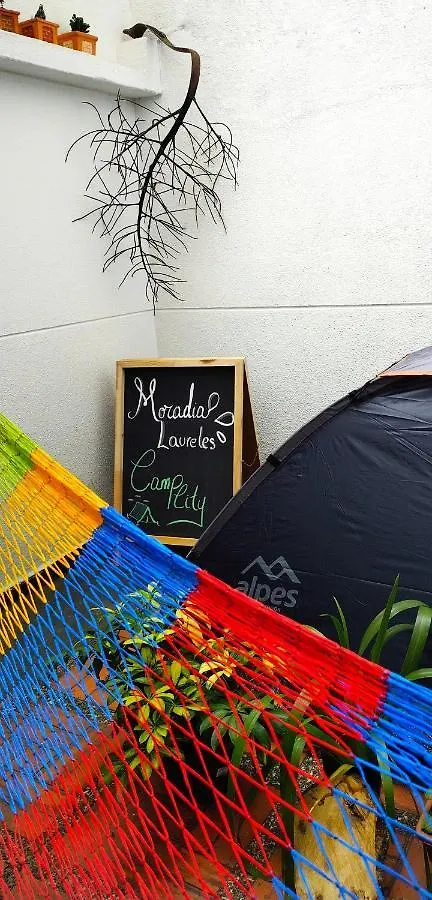 Moradia
Laureles
Camp City
alpes